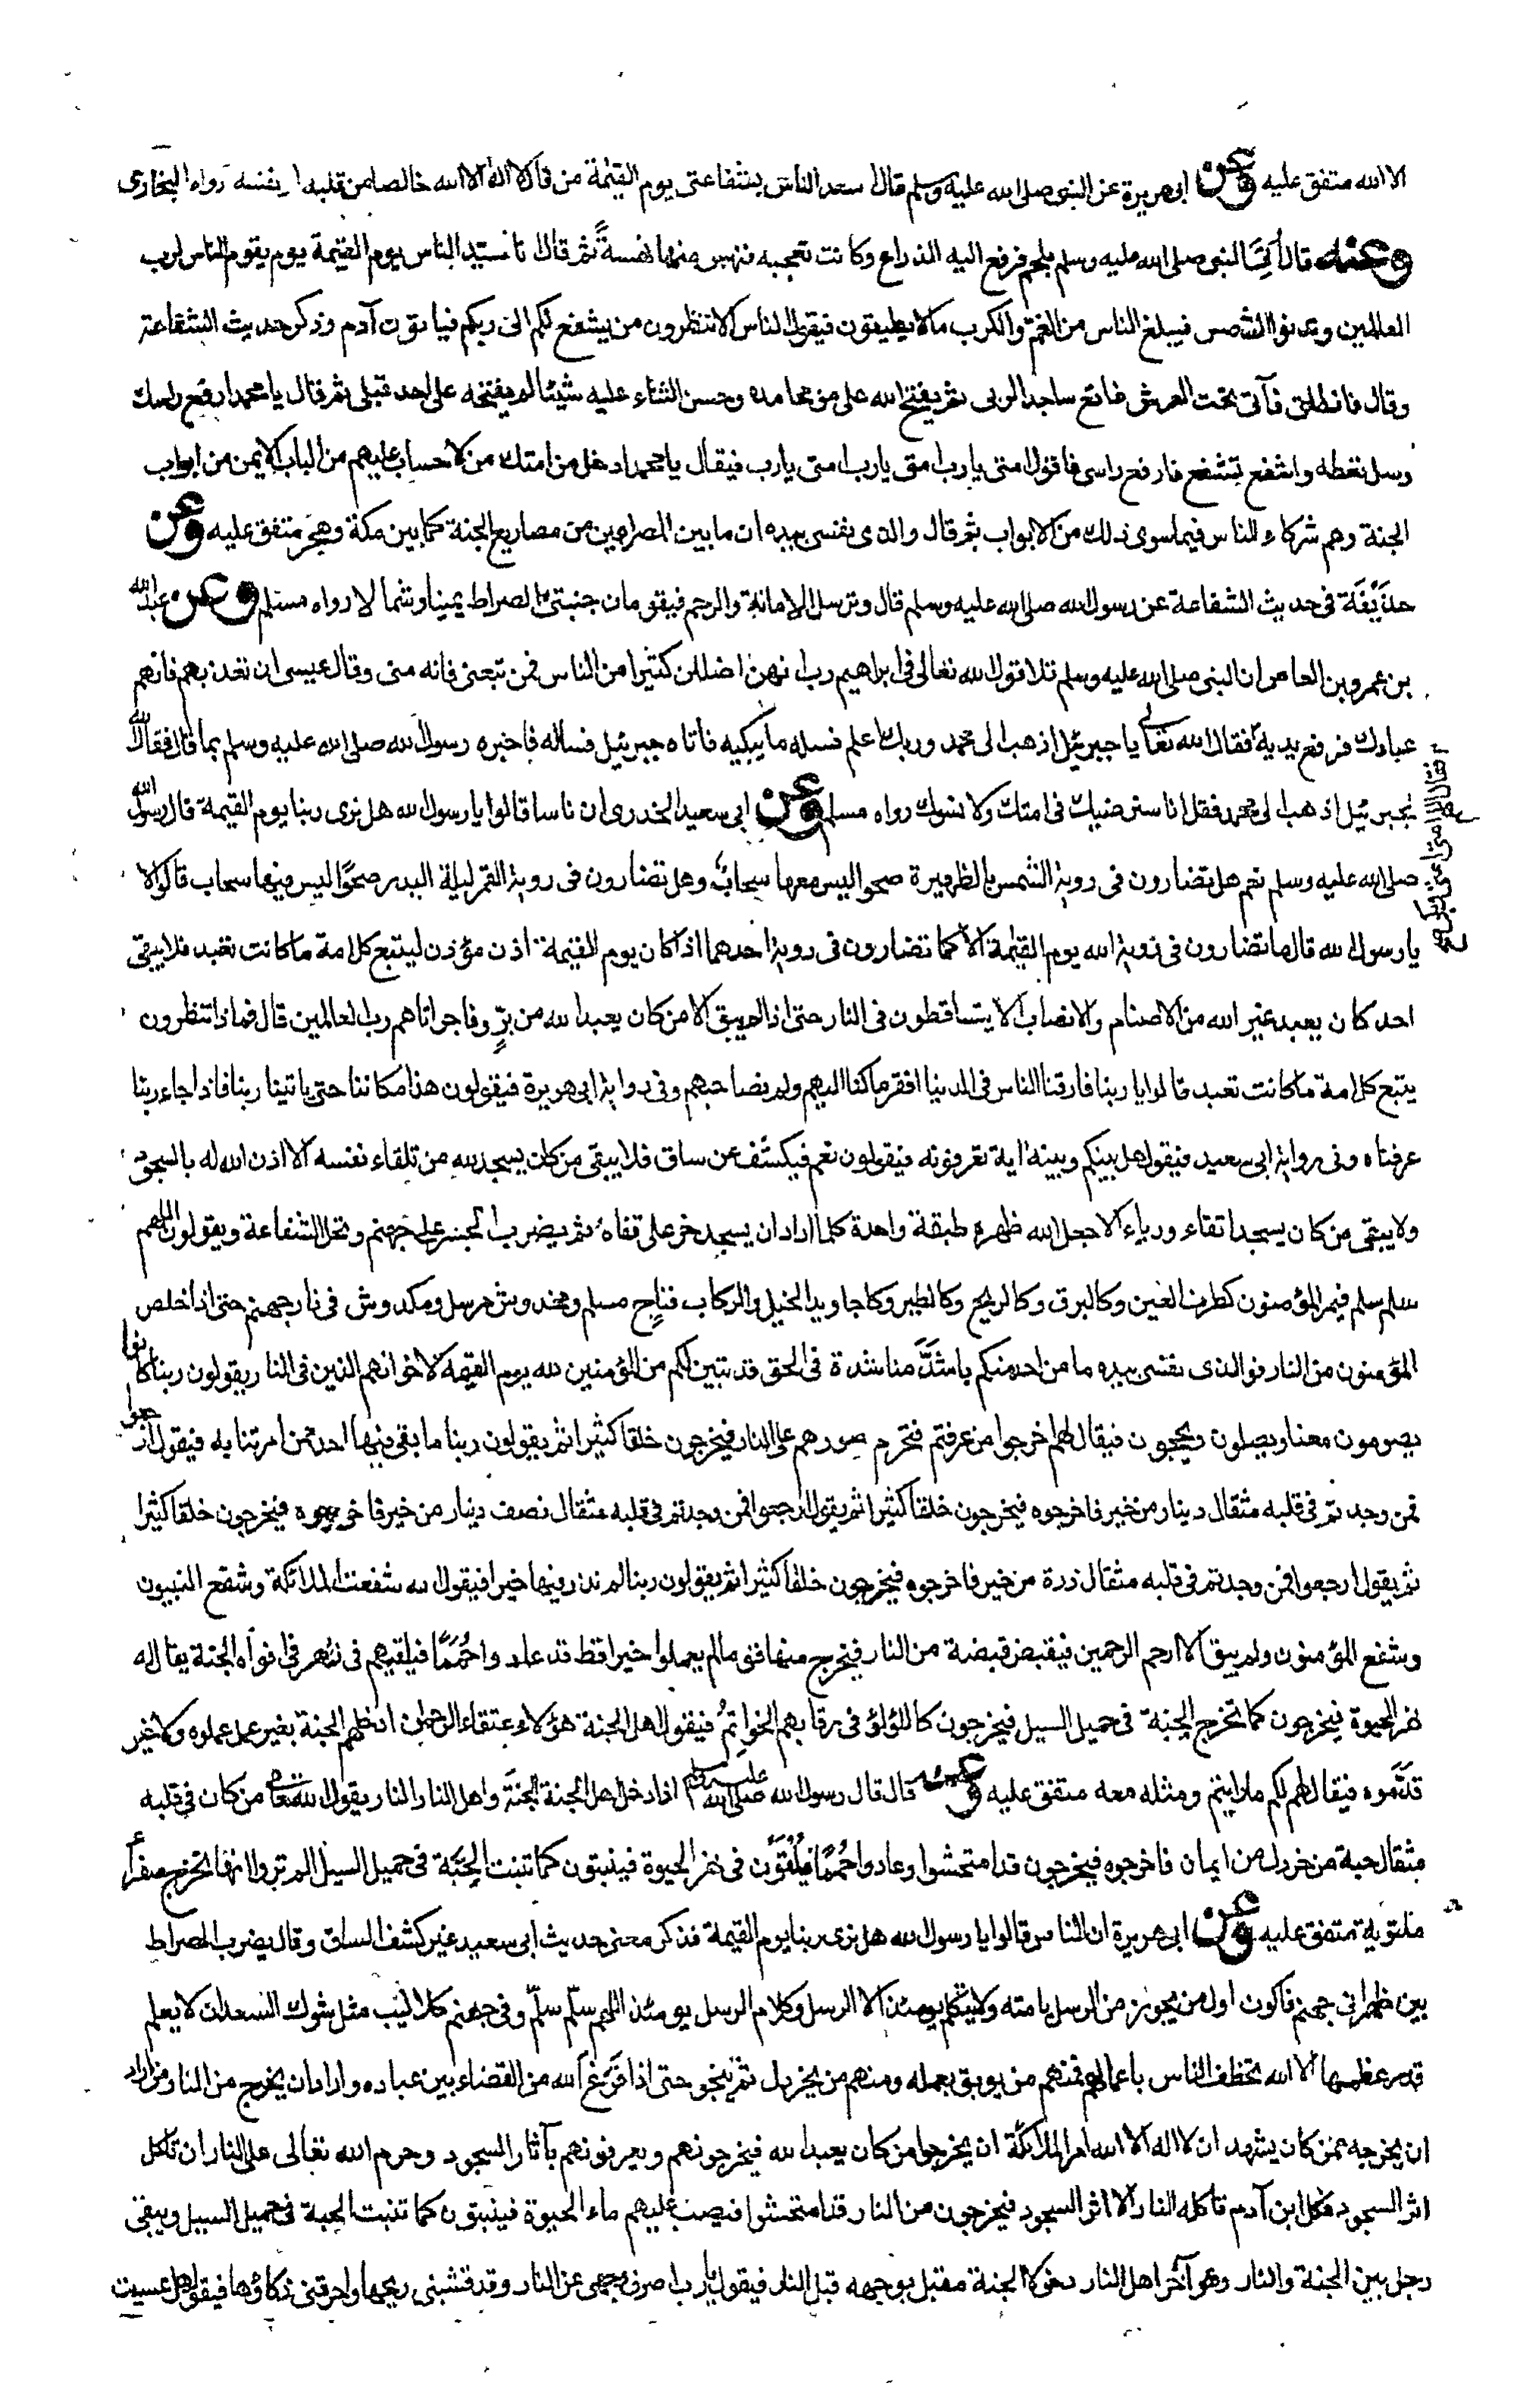 الا الله متفق عليه وعن ابى هريرة عن النبى صلى الله عليه وسلم قال سعد الناس بشفاعتى يوم القيمة من قال لا اله الا الله خالصا من قلبه او نفسه رواه البخارى
وعنه قال اُتِىَ النبى صلى الله عليه وسلم بلحم فرفع اليه الذراع وكانت تعجبه فنهس منها نهسةً ثم قال انا سيد الناس يوم القيمة يوم يقوم الناس لرب
العالمين وتدنوا الشمس فيبلغ الناس من الغم والكرب ما لا يطيقون فيقول الناس الا تنظرون من يشفع لكم الى ربكم فياتون آدم وذكر حديث الشفاعة
وقال فانطلق فآتى تحت العرش فاقع ساجدا لربى ثم يفتح الله على من محامده وحسن الثناء عليه شيئا لم يفتحه على احد قبلى ثم قال يا محمد ارفع راسك
وسل تعطه واشفع تشفع فارفع راسى فاقول امتى يا رب امتى يا رب امتى يا رب فيقال يا محمد ادخل من امتك من لا حساب عليهم من الباب الايمن من ابواب
الجنة وهم شركاء الناس فيما سوى ذلك من الابواب ثم قال والذى نفسى بيده ان ما بين المصراعين من مصاريع الجنة كما بين مكة وهجر متفق عليه وعن
حذَيْفَة فى حديث الشفاعة عن رسول الله صلى الله عليه وسلم قال وترسل الامانة والرحم فيقومان جنبتى الصراط يمينا وشمالا رواه مسلم وعن عبد الله
بن عمرو بن العاص ان النبى صلى الله عليه وسلم تلا قول الله تعالى فى ابراهيم رب انهن اضللن كثيرا من الناس فمن تبعنى فانه منى وقال عيسى ان تعذبهم فانهم
عبادك فرفع يديه فقال الله تعالى يا جبرئيل اذهب الى محمد وربك اعلم فسله ما يبكيه فاتاه جبرئيل فساله فاخبره رسول الله صلى الله عليه وسلم بما قال فقال الله
فقال اللهم امتى امتى وبكى
لجبرئيل اذهب الى محمد فقل انا سنرضيك فى امتك ولا نسوك رواه مسلم وعن ابى سعيد الخدرى ان ناسا قالوا يا رسول الله هل نرى ربنا يوم القيمة قال رسول الله
صلى الله عليه وسلم نعم هل تضارون فى روية الشمس بالظهيرة صحوا ليس معها سحاب وهل تضارون فى روية القمر ليلة البدر صحوًا ليس فيها سحاب قالوا لا
يا رسول الله قال ما تضارون فى روية الله يوم القيمة الا كما تضارون فى روية احدهما اذا كان يوم القيمة اذن مؤذن ليتبع كل امة ما كانت تعبد فلا يبقى
احد كان يعبد غير الله من الاصنام والانصاب الا يتساقطون فى النار حتى اذا لم يبق الا من كان يعبد الله من برٍّ وفاجر اتاهم رب العالمين قال فماذا تنظرون
يتبع كل امة ما كانت تعبد قالوا يا ربنا فارقنا الناس فى الدنيا افقر ما كنا اليهم ولم نصاحبهم وفى رواية ابى هريرة فيقولون هذا مكاننا حتى ياتينا ربنا فاذا جاء ربنا
عرفناه وفى رواية ابى سعيد فيقول هل بينكم وبينه اية تعرفونه فيقولون نعم فيكشف عن ساق فلا يبقى من كان يسجد لله من تلقاء نفسه الا اذن الله له بالسجود
ولا يبقى من كان يسجد اتقاء ورياء الا جعل الله ظهره طبقة واحدة كلما اراد ان يسجد خر على قفاه ثم يضرب الجسر على جهنم وتحل الشفاعة ويقولون اللهم
سلم سلم فيمر المؤمنون كطرف العين وكالبرق وكالريح وكالطير وكاجاويد الخيل والركاب فناجٍ مسلم ومخدوش مرسل ومكدوش فى نار جهنم حتى اذا خلص
المؤمنون من النار فوالذى نفسى بيده ما من احد منكم باشدَّ مناشدة فى الحق قد تبين لكم من المؤمنين لله يوم القيمة لاخوانهم الذين فى النار يقولون ربنا كانوا
يصومون معنا ويصلون ويحجون فيقال لهم اخرجوا من عرفتم فتحرم صورهم على النار فيخرجون خلقا كثيرا ثم يقولون ربنا ما بقى فيها احد ممن امرتنا به فيقول ارجعوا
فمن وجدتم فى قلبه مثقال دينار من خير فاخرجوه فيخرجون خلقا كثيرا ثم يقول ارجعوا فمن وجدتم فى قلبه مثقال نصف دينار من خير فاخرجوه فيخرجون خلقا كثيرا
ثم يقول ارجعوا فمن وجدتم فى قلبه مثقال ذرة من خير فاخرجوه فيخرجون خلقا كثيرا ثم يقولون ربنا لم نذر فيها خيرا فيقول الله شفعت الملائكة وشفع النبيون
وشفع المؤمنون ولم يبق الا ارحم الرحمين فيقبض قبضة من النار فيخرج منها قوما لم يعملوا خيرا قط قد عادوا حُمَمًا فيلقيهم فى نهر فى افواه الجنة يقال له
نهر الحيوة فيخرجون كما تخرج الحبة فى حميل السيل فيخرجون كاللؤلؤ فى رقابهم الخواتم فيقول اهل الجنة هؤلاء عتقاء الرحمن ادخلهم الجنة بغير عمل عملوه ولا خير
قدَّموه فيقال لهم لكم ما رايتم ومثله معه متفق عليه وعنه قال قال رسول الله صلى الله عليه وسلم اذا دخل اهل الجنة الجنة واهل النار النار يقول الله تعالى من كان فى قلبه
مثقال حبة من خردل من ايمان فاخرجوه فيخرجون قد امتحشوا وعادوا حُمَمًا فيُلْقَوْن فى نهر الحيوة فينبتون كما تنبت الحِبَّة فى حميل السيل الم تروا انها تخرج صفراً
ملتوية متفق عليه وعن ابى هريرة ان الناس قالوا يا رسول الله هل نرى ربنا يوم القيمة فذكر معنى حديث ابى سعيد غير كشف الساق وقال يضرب الصراط
بين ظهرانى جهنم فاكون اول من يجوز من الرسل بامته ولا يتكلم يومئذ الا الرسل وكلام الرسل يومئذ اللهم سلّم سلّم وفى جهنم كلاليب مثل شوك السعدان لا يعلم
قدر عظمها الا الله تخطف الناس باعمالهم فمنهم من يوبق بعمله ومنهم من يخردل ثم ينجو حتى اذا فَرَغَ الله من القضاء بين عباده واراد ان يخرج من النار من اراد
ان يخرجه ممن كان يشهد ان لا اله الا الله امر الملائكة ان يخرجوا من كان يعبد الله فيخرجونهم ويعرفونهم بآثار السجود وحرم الله تعالى على النار ان تاكل
اثر السجود فكل ابن آدم تاكله النار الا اثر السجود فيخرجون من النار قد امتحشوا فيصب عليهم ماء الحيوة فينبتون كما تنبت الحبة فى حميل السيل ويبقى
رجل بين الجنة والنار وهو آخر اهل النار دخولا الجنة مقبل بوجهه قبل النار فيقول يا رب اصرف وجهى عن النار وقد قشبنى ريحها واحرقنى ذكاؤها فيقول هل عسيت